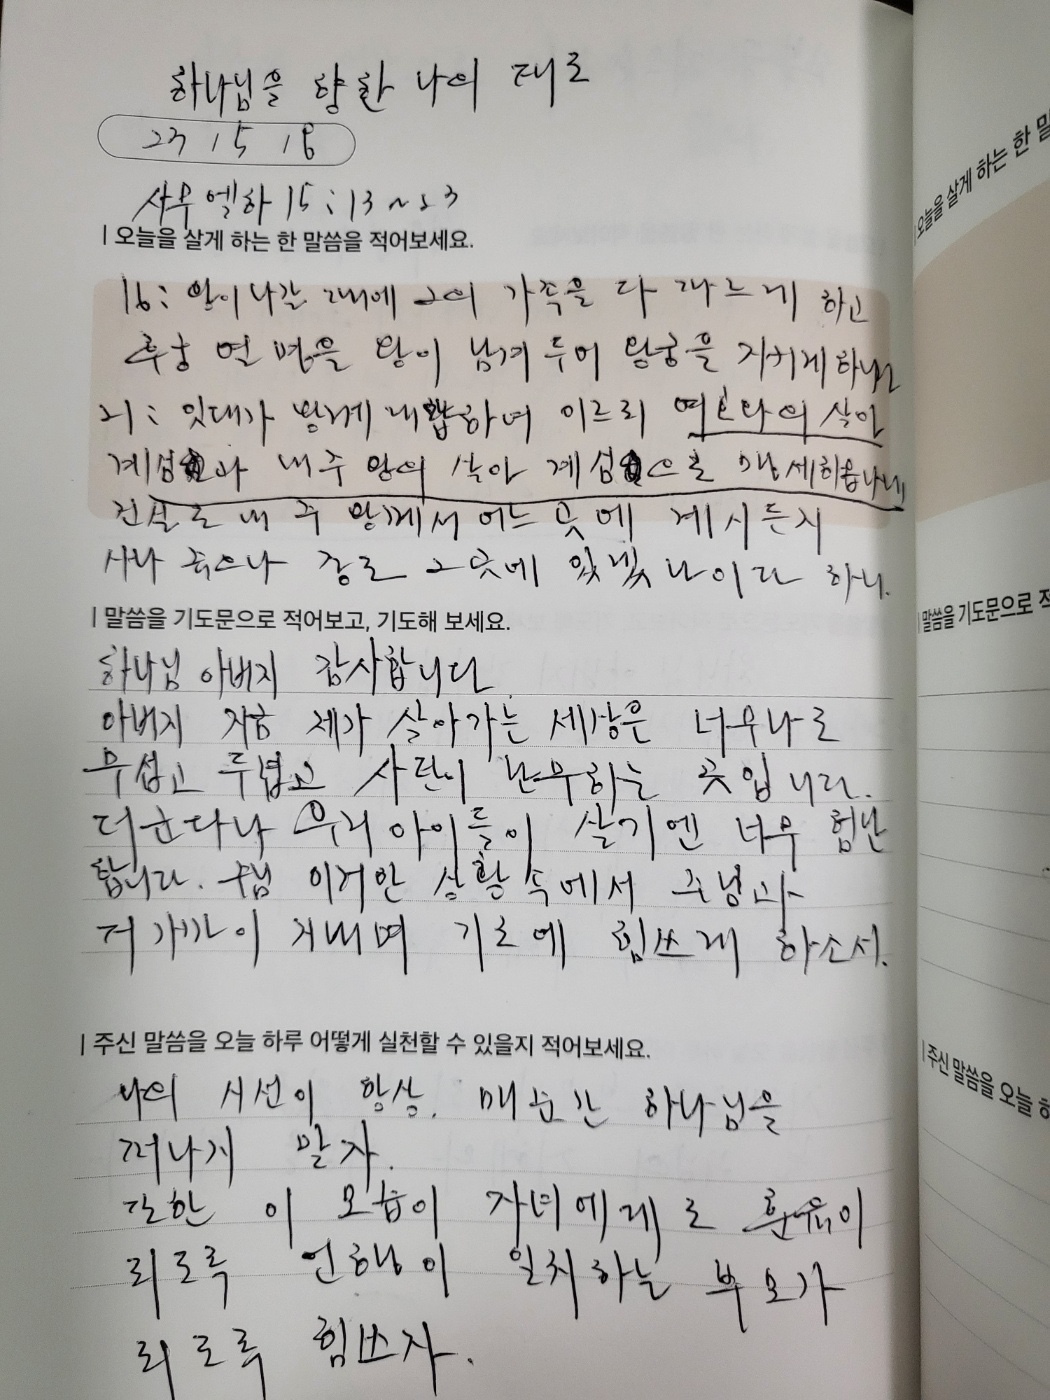 하나님을 향한 나의 태도
23 15 16
사무엘하 15:13~23
| 오늘을 살게 하는 한 말씀을 적어보세요.
16: 왕이 나갈 때에 그의 가족을 다 따르게 하고
후궁 열 명을 왕이 남겨 두어 왕궁을 지키게하니라
21: 잇대가 왕께 대답하여 이르되 여호와의 살아
계심과 내 주 왕의 살아 계심으로 맹세하옵나니
진실로 내 주 왕께서 어느 곳에 계시든지
사나 죽으나 종도 그곳에 있겠나이다 하니.
| 말씀을 기도문으로 적어보고, 기도해 보세요.
하나님 아버지 감사합니다.
아버지 지금 제가 살아가는 세상은 너무나도
무섭고 두렵고 사단이 난무하는 곳입니다.
더군다나 우리 아이들이 살기엔 너무 험난
합니다. 주님 이러한 상황 속에서 주님과
더 가까이 지내며 기도에 힘쓰게 하소서.
| 주신 말씀을 오늘 하루 어떻게 실천할 수 있을지 적어보세요.
나의 시선이 항상, 매순간 하나님을
떠나지 말자.
또한 이 모습이 자녀에게도 훈육이
되도록 언행이 일치하는 부모가
되도록 힘쓰자.
| 오늘을 살게 하는 한 말
| 말씀을 기도문으로 적
| 주신 말씀을 오늘 하